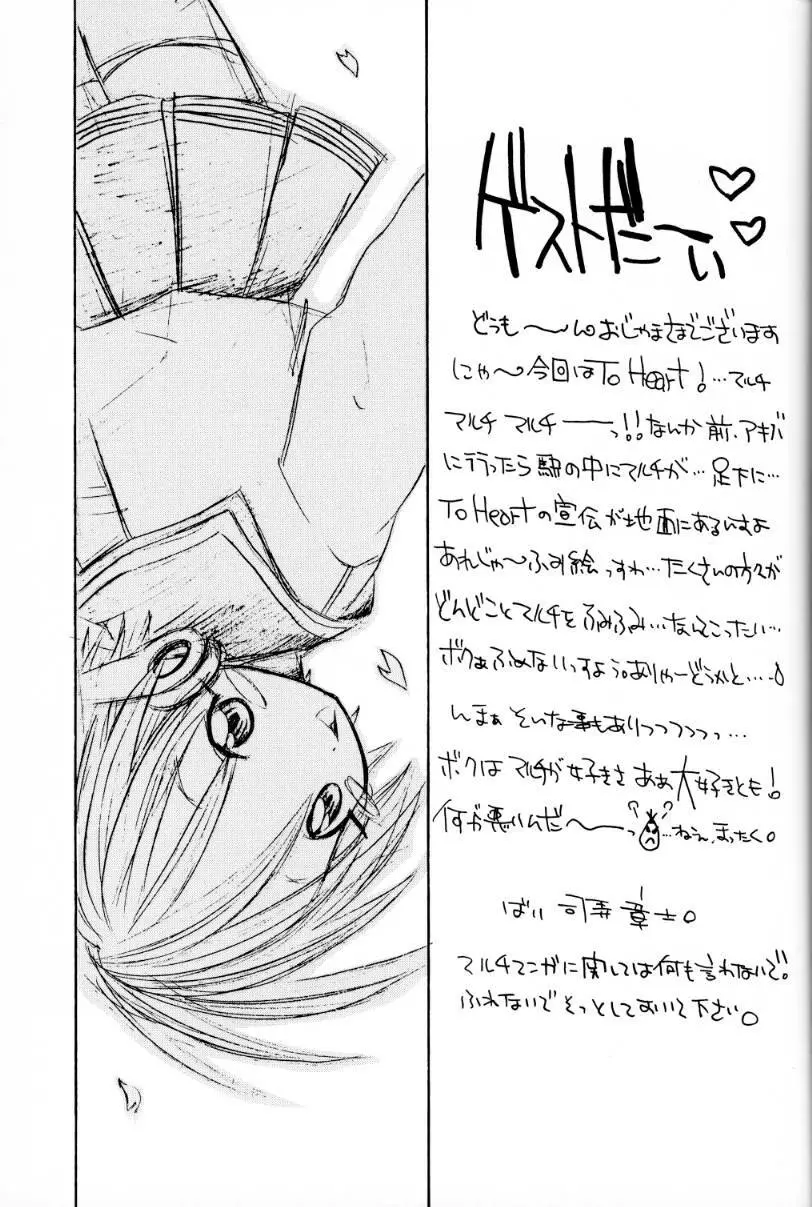 ゲストだーい♡♡
どうも〜〜んおじゃまさまでございます
にゃ〜今回はTo Heart!…マルチ
マルチ マルチ――っ!!なんか前、アキバ
に行ったら駅の中にマルチが…足下に…
To Heartの宣伝が地面にあるいすよ
あれじゃ〜ふみ絵っすわ…たくさんの方々が
どんどことマルチをふみふみ…なんてこったい…
ボクぁふめないっすよう。ありゃーどうかと…
んまぁそいな事もありつつつつっ…
ボクはマルチが好きさ ああ大好きとも!
何が悪いんだ〜――っ ?? …ねぇ、まったく。
ばい 司 章士。
マルチマンガに関しては何も言わないで。
ふれないでそっとしておいて下さい。